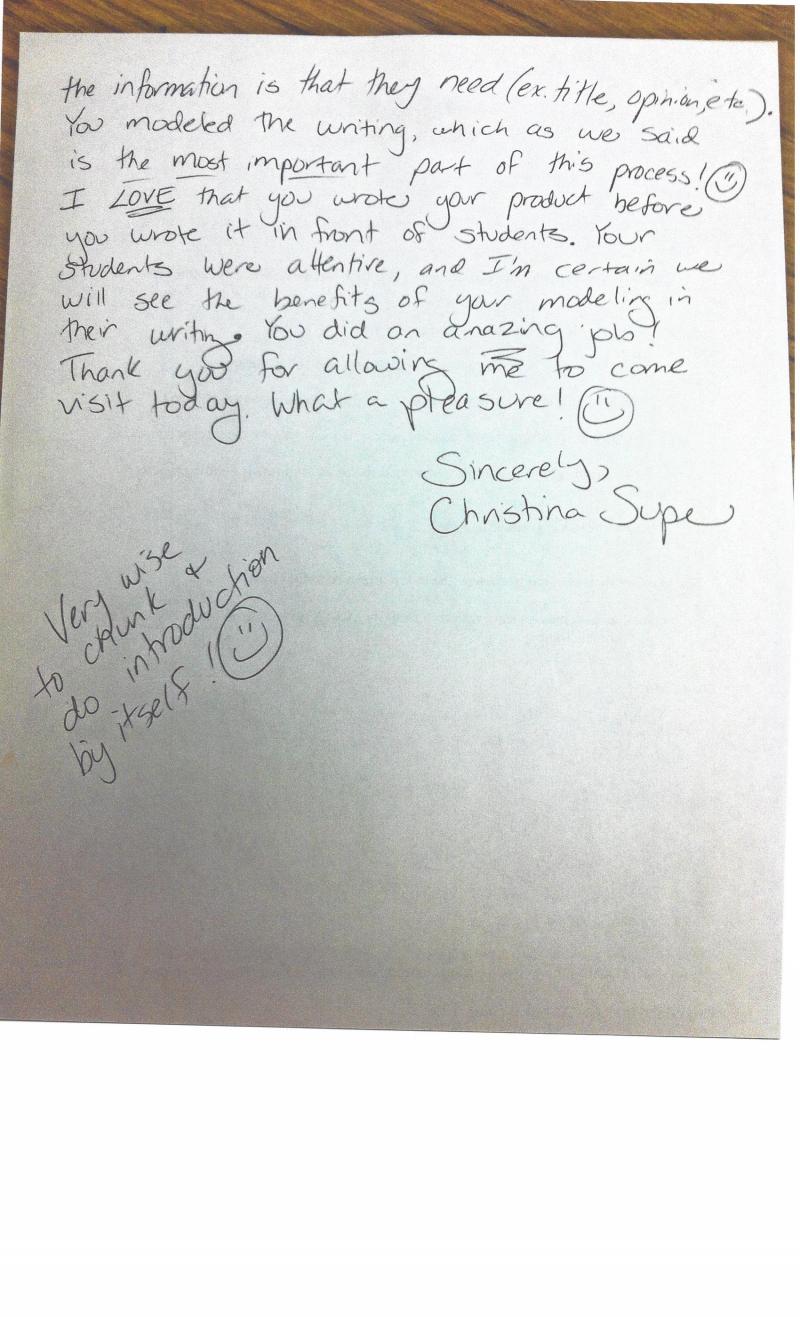 the information is that they need (ex. title, opinion, etc.).
You modeled the writing, which as we said
is the most important part of this process!
I LOVE that you wrote your product before
you wrote it in front of students. Your
students were attentive, and I'm certain we
will see the benefits of your modeling in
their writing. You did an amazing job!
Thank you for allowing me to come
visit today. What a pleasure!
Sincerely,
Christina Supe
Very wise
to chunk &
do introduction
by itself!